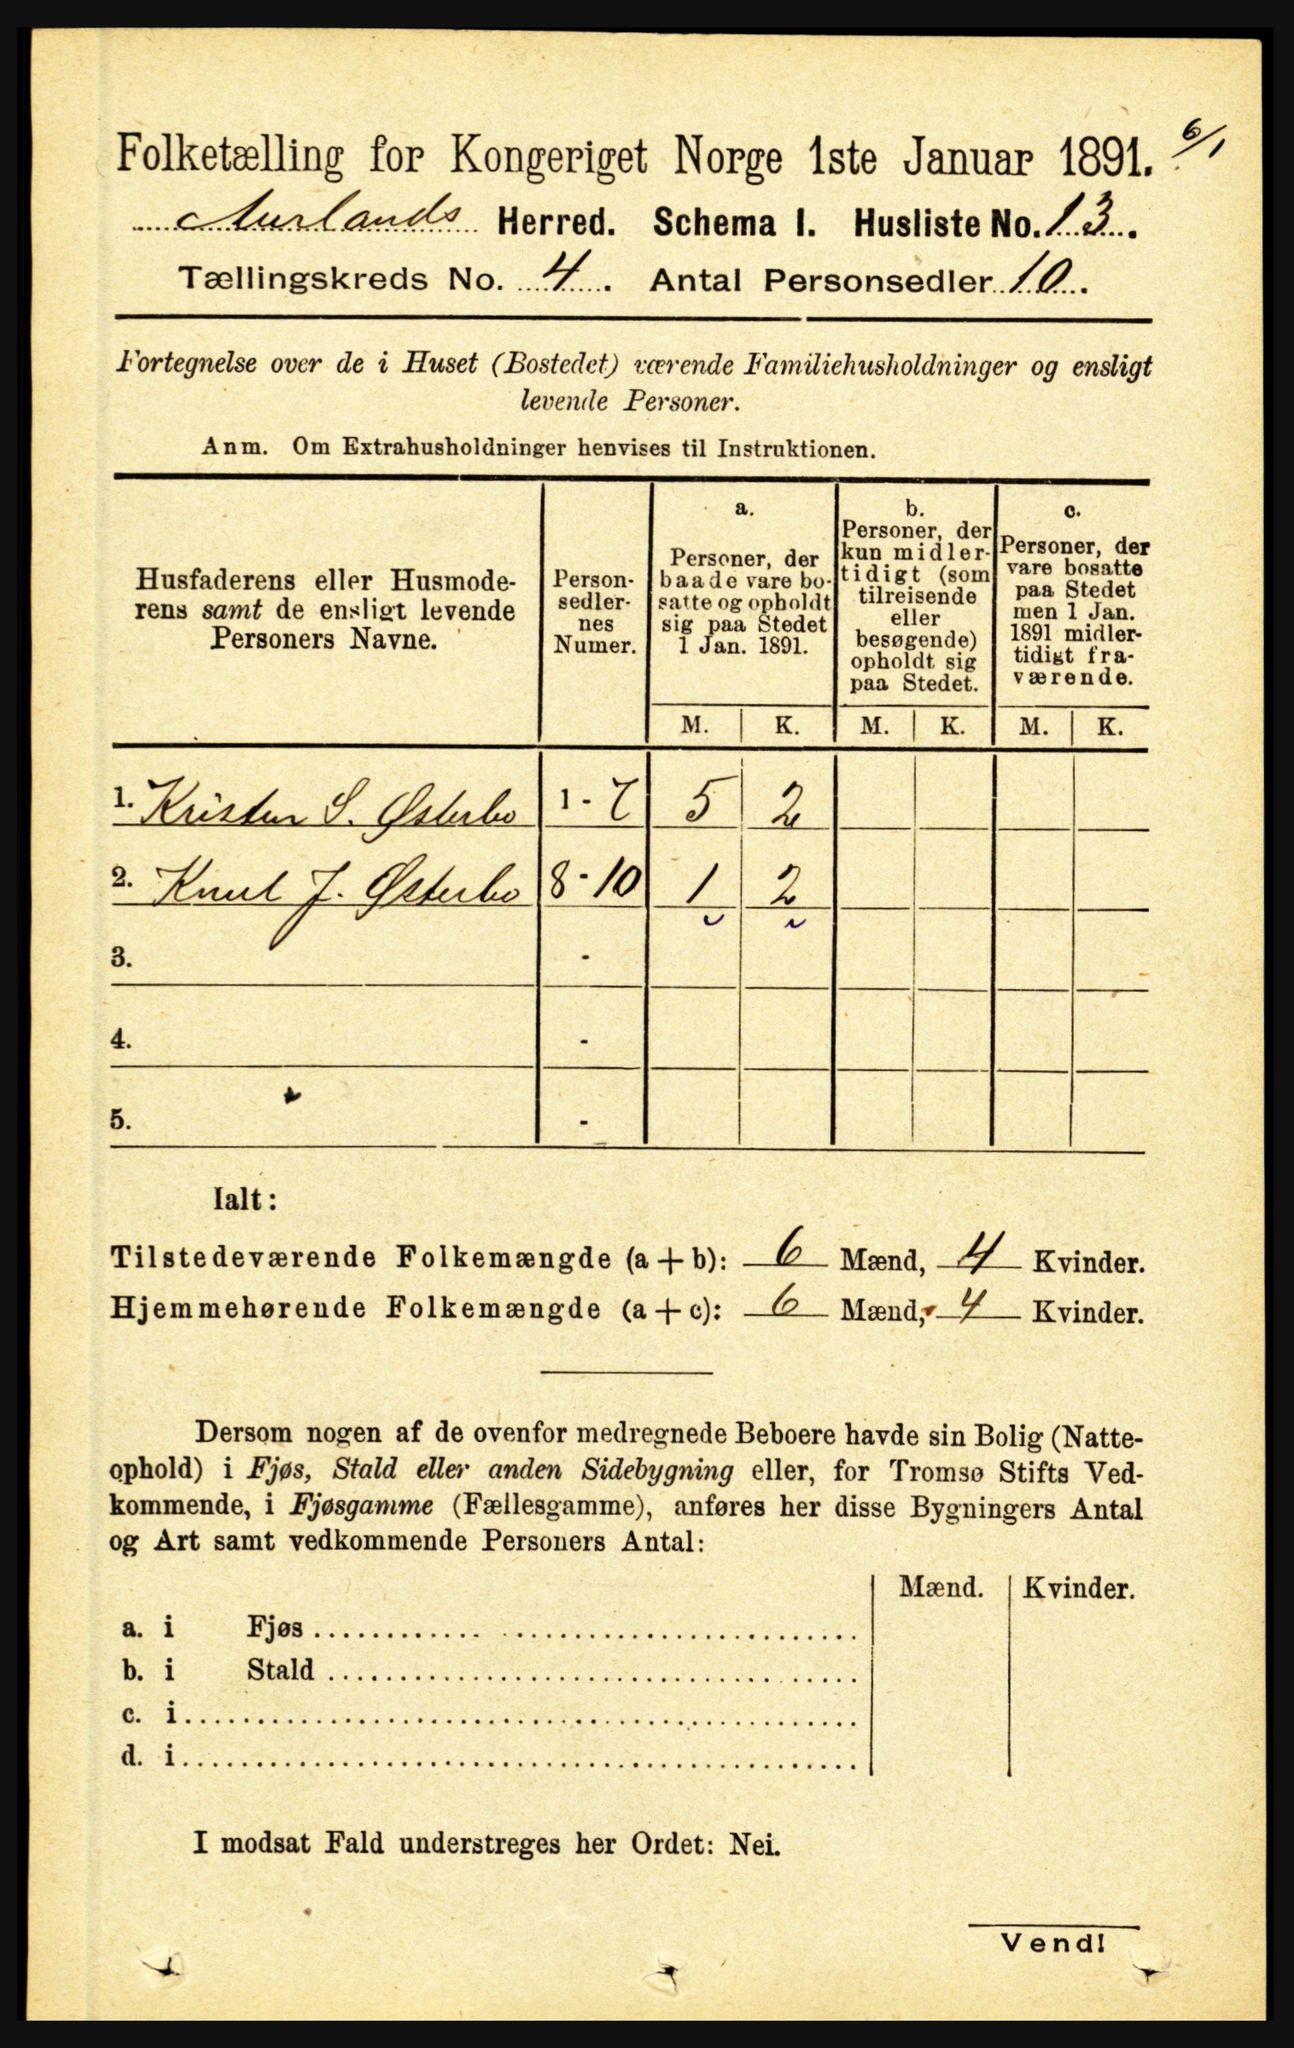 Folketælling for Kongeriget Norge 1ste Januar 1891. 6/1
Aurlands Herred. Schema I. Husliste No. 13.
Tællingskreds No. 4. Antal Personsedler 10.
Fortegnelse over de i Huset (Bostedet) værende Familiehusholdninger og ensligt
levende Personer.
Anm. Om Extrahusholdninger henvises til Instruktionen.
Husfaderens eller Husmode-
rens samt de ensligt levende
Personers Navne.
Person-
sedler-
nes
Numer.
a.
Personer, der
baade vare bo-
satte og opholdt
sig paa Stedet
1 Jan. 1891.
b.
Personer, der
kun midler-
tidigt (som
tilreisende
eller
besøgende)
opholdt sig
paa Stedet.
c.
Personer, der
vare bosatte
paa Stedet
men 1 Jan.
1891 midler-
tidigt fra-
værende.
M. K. M. K. M. K.
1. Kristen S. Østerbo 1 - 7 5 2
2. Knut J. Østerbo 8 - 10 1 2
3. -
4. -
5. -
Ialt:
Tilstedeværende Folkemængde (a + b): 6 Mænd, 4 Kvinder.
Hjemmehørende Folkemængde (a + c): 6 Mænd, 4 Kvinder.
Dersom nogen af de ovenfor medregnede Beboere havde sin Bolig (Natte-
ophold) i Fjøs, Stald eller anden Sidebygning eller, for Tromsø Stifts Ved-
kommende, i Fjøsgamme (Fællesgamme), anføres her disse Bygningers Antal
og Art samt vedkommende Personers Antal:
Mænd. Kvinder.
a. i Fjøs
b. i Stald
c. i
d. i
I modsat Fald understreges her Ordet: Nei.
Vend!